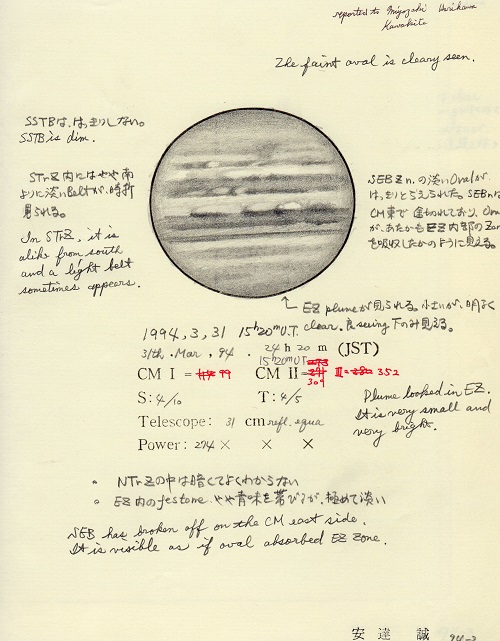 reported to Miyazaki Horikawa
Kuwakita
The faint oval is cleary seen.
SSTBは、はっきりしない。
SSTB is dim.
STrZ内にはやや南
よりに淡いBeltが、時折
見られる。
In STrZ, it is
alike from south
and a light belt
sometimes appears.
SEBZ n.の淡いOvalが
はっきりとらえられた。SEBnは
CM東で途切れており、Oval
が、あたかもEZ内部のZone
を吸収したかのように見える。
EZ plumeが見られる。小さいが、明るく
clear. 良seeing下のみ見える。
1994, 3, 31 15h20mU.T.
31th. Mar, 94. 24 h 20 m (JST)
15h20mUT
CM I = 99 CM II = 304 III = 352
S: 4/10 T: 4/5
Telescope: 31 cm refl. equa
Power: 274 × × ×
Plume looked in EZ.
It is very small and
very bright.
• NTrZの中は暗くてよくわからない
• EZ内のfestoneやや青味を帯びるが、極めて淡い
SEB has broken off on the CM east side.
It is visible as if oval absorbed EZ Zone.
安達 誠